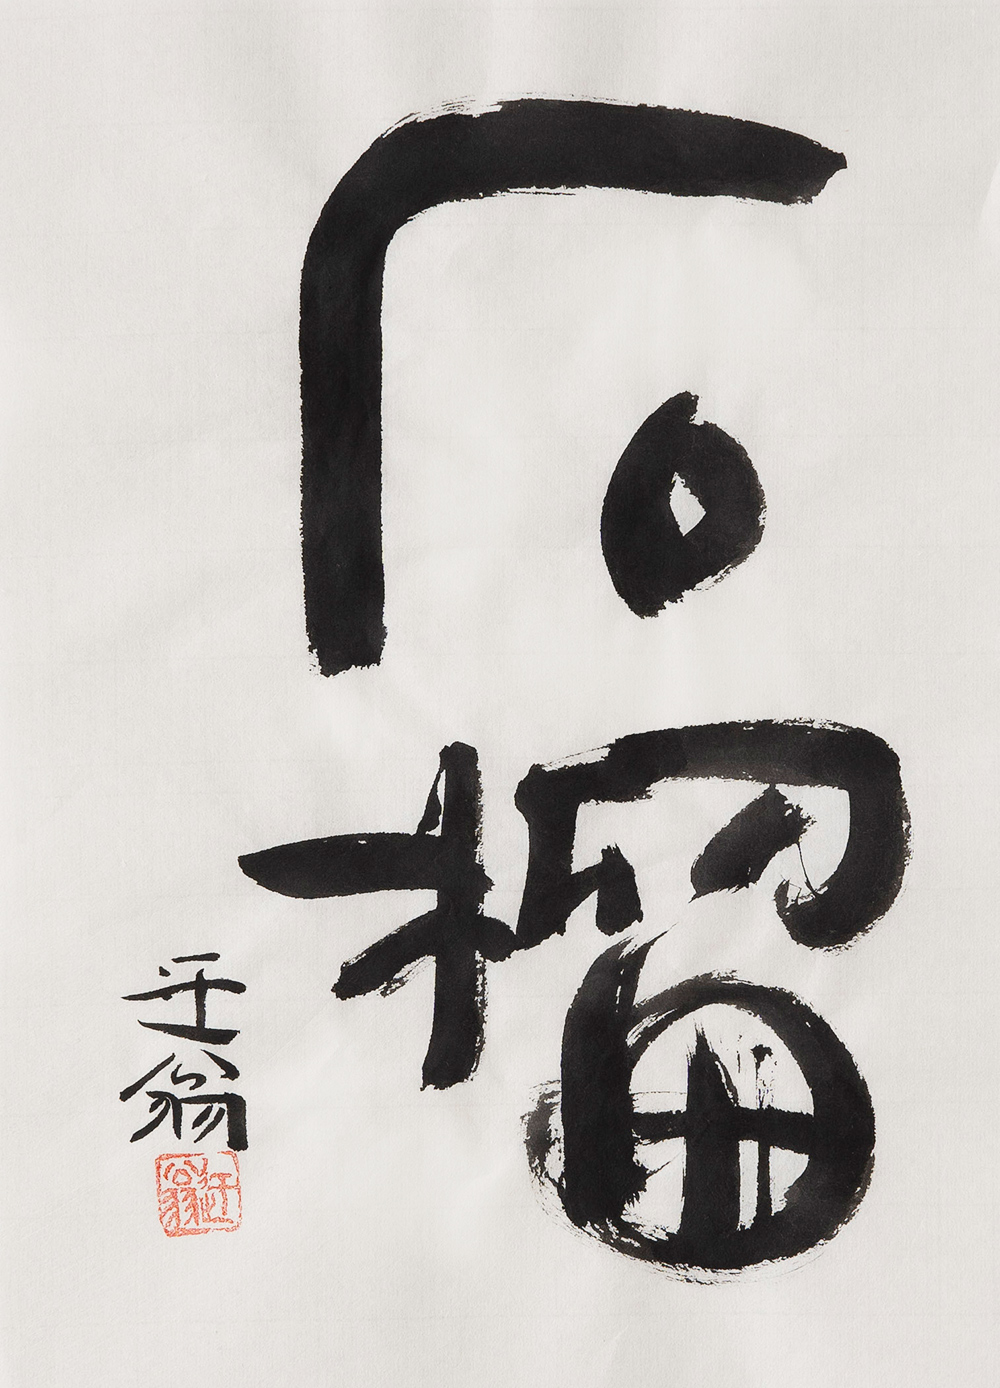 石榴
迂翁